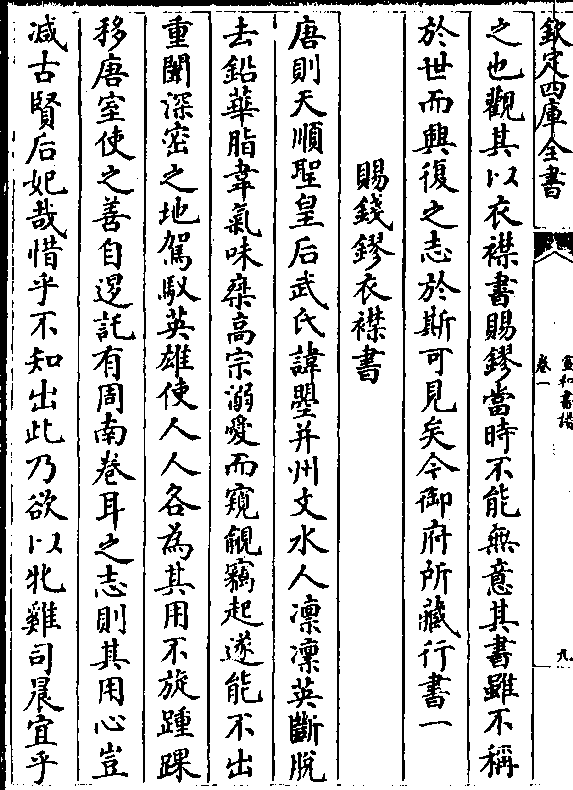 欽定四庫全書
宣和書譜
卷一
九
之也觀其以衣襟書賜鏐當時不能無意其書雖不稱
於世而興復之志於斯可見矣今御府所藏行書一
賜錢鏐衣襟書
唐則天順聖皇后武氏諱曌并州文水人凛凛英斷脫
去鉛華脂韋氣味乘高宗溺愛而窺覦竊起遂能不出
重闈深密之地駕馭英雄使人人各為其用不旋踵踝
移唐室使之善自㴑託有周南卷耳之志則其用心豈
减古賢后妃哉惜乎不知出此乃欲以牝雞司晨宜乎